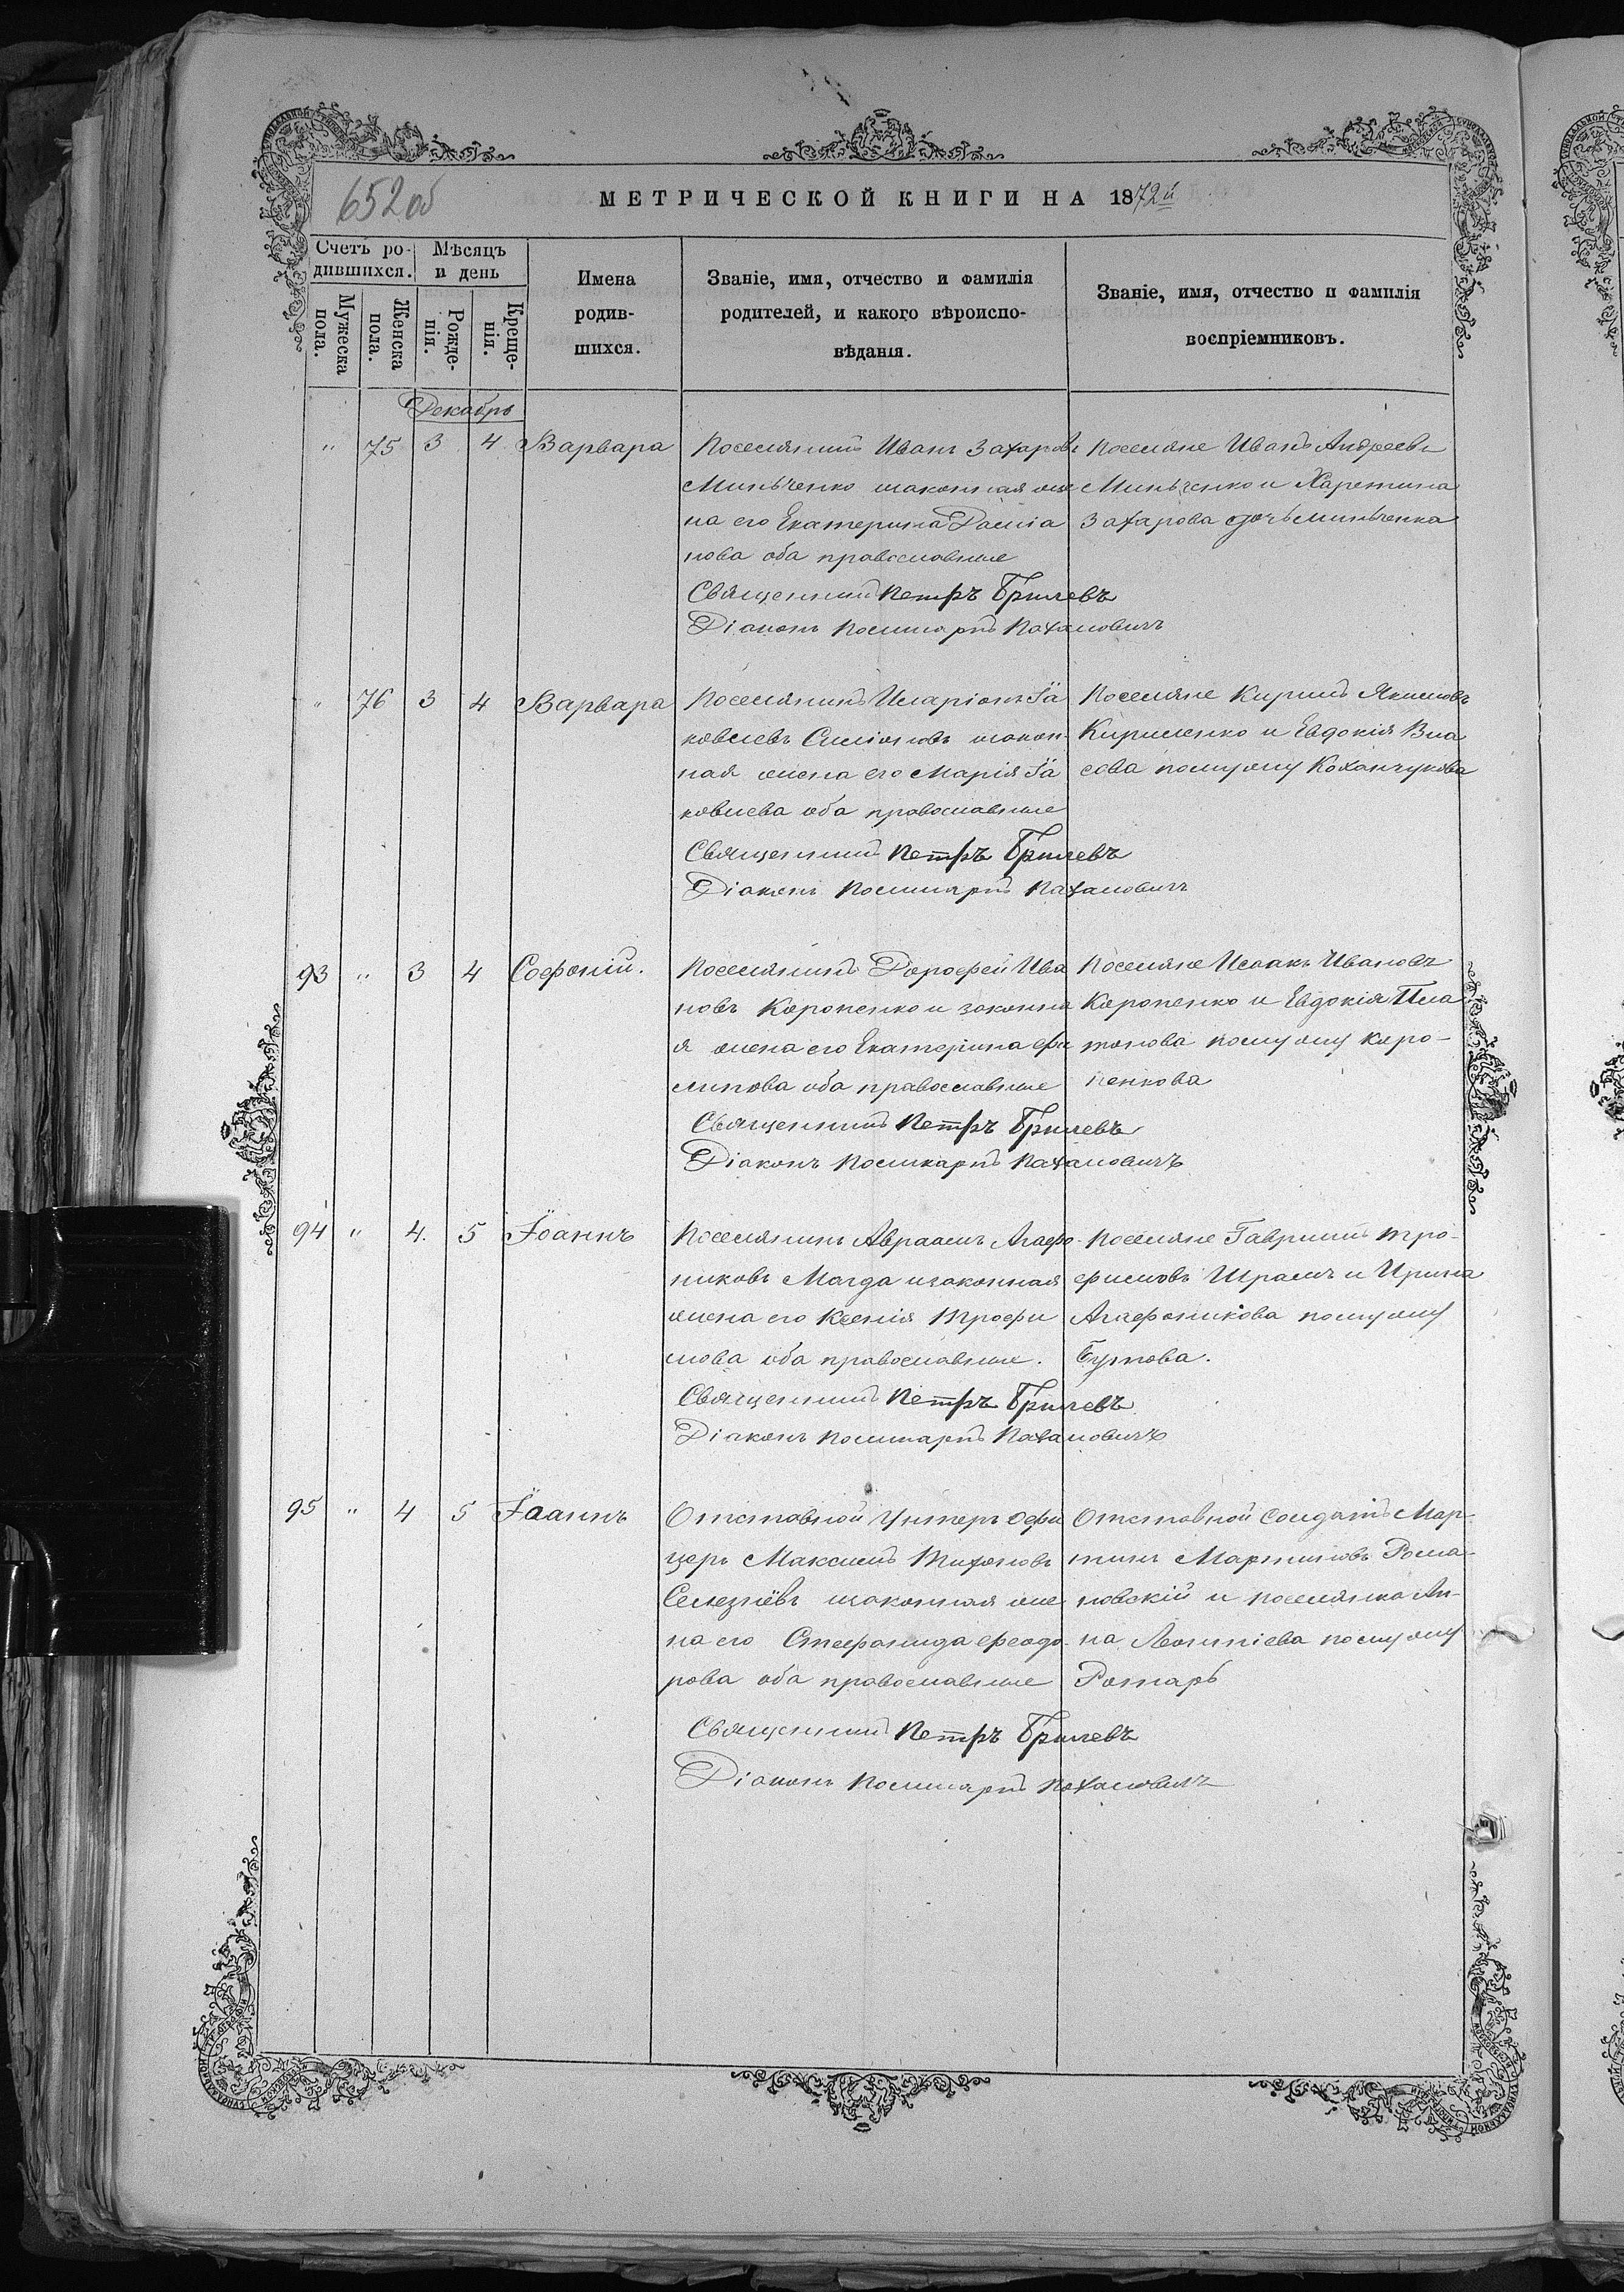 652 об
МЕТРИЧЕСКОЙ КНИГИ НА 1872й
Счетъ ро-
дившихся.
Мѣсяцъ
и день
Мужеска
пола.
Женска
пола.
Рожде-
нія.
Креще-
нія.
Имена
родив-
шихся.
Званіе, имя, отчество и фамилія
родителей, и какого вѣроиспо-
вѣданія.
Званіе, имя, отчество и фамилія
воспріемниковъ.
Декабрь
" 75 3 4 Варвара
Поселянинъ Иванъ Захаровъ
Миньченко изаконная же
на его Екатерина Даміа
нова оба православные
Священникъ Петръ Брилевъ
Діаконъ Поликарпъ Пахаловичъ
Поселяне Иванъ Андреевъ
Миньченко и Харетина
Захарова дочь Миньченка
" 76 3 4 Варвара
Поселянинъ Иларіонъ Іа
ковлевъ Симоновъ изакон-
ная жена его Марія Іа
ковлева оба православные
Священникъ Петръ Брилевъ
Діаконъ Поликарпъ Пахаловичъ
Поселяне Кирилъ Якимовъ
Кириленко и Евдокія Вла
сова помужу Коханчукова
93 " 3 4 Софоній.
Поселянинъ Дорофей Ива
новъ Коропенко и законна
я жена его Екатерина Фи
липова оба православные
Священникъ Петръ Брилевъ
Діаконъ Поликарпъ Пахаловичъ
Поселяне Исаакъ Ивановъ
Коропенко и Евдокія Пла
тонова помужу Коро-
пенкова
94 " 4. 5 Іоаннъ
Поселянинъ Авраамъ Агафо-
никовъ Магда изаконная
жена его Ксенія Трофи
мова оба православные.
Священникъ Петръ Брилевъ
Діаконъ Поликарпъ Пахаловичъ
Поселяне Гавриилъ Тро-
фимовъ Шрамъ и Ирина
Агафоникова помужу
95 " 4 5 Іоаннъ
Отставной Унтеръ Офи
церъ Максимъ Тихоновъ
Селезнёвъ изаконная же
на его Стефанида Феодо-
рова оба православные
Священникъ Петръ Брилевъ
Діаконъ Поликарпъ Пахаловичъ
Отставной Солдатъ Мар-
тинъ Мартиновъ Рома-
новскій и поселянка Ан-
на Леонтіева помужу
Ротарь